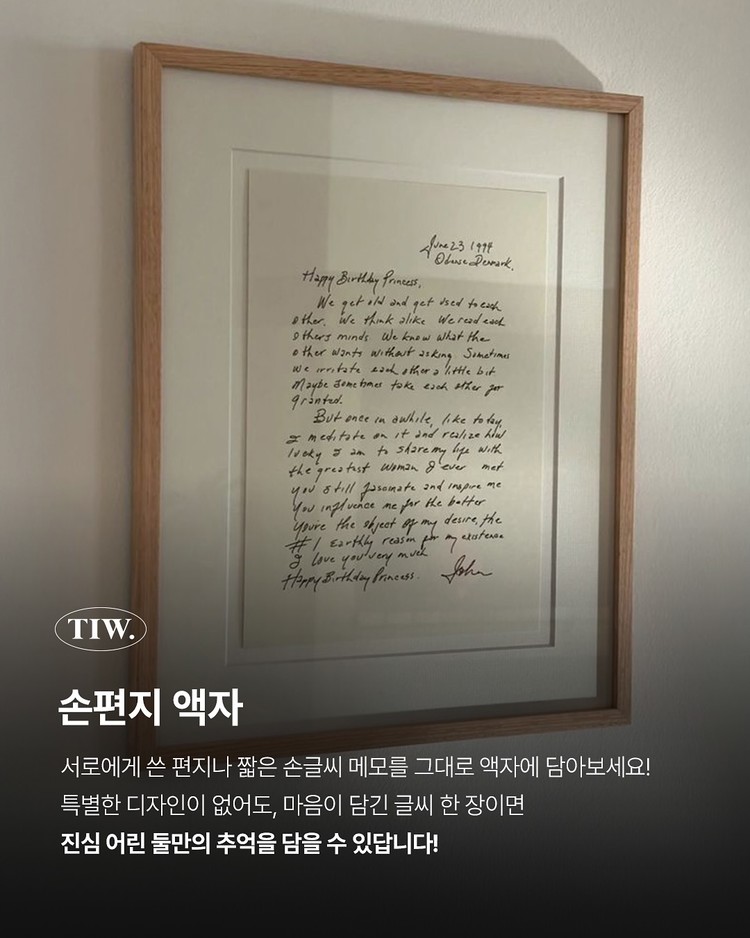 June 23 1994
Odense Denmark.
Happy Birthday Princess,
We get old and get used to each
other. We think alike We read each
others minds We know what the
other wants without asking. Sometimes
we irritate each other a little bit
Maybe sometimes take each other for
granted.
But once in awhile, like today,
I meditate on it and realize how
lucky I am to share my life with
the greatest woman I ever met
you still fascinate and inspire me
You influence me for the better
You're the object of my desire, the
#1 Earthly reason for my existence
I love you very much
Happy Birthday Princess. John
TIW.
손편지 액자
서로에게 쓴 편지나 짧은 손글씨 메모를 그대로 액자에 담아보세요!
특별한 디자인이 없어도, 마음이 담긴 글씨 한 장이면
진심 어린 둘만의 추억을 담을 수 있답니다!